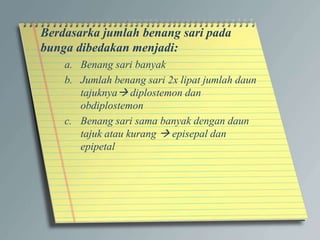 Berdasarka jumlah benang sari pada
bunga dibedakan menjadi:
a. Benang sari banyak
b. Jumlah benang sari 2x lipat jumlah daun
tajuknya → diplostemon dan
obdiplostemon
c. Benang sari sama banyak dengan daun
tajuk atau kurang → episepal dan
epipetal